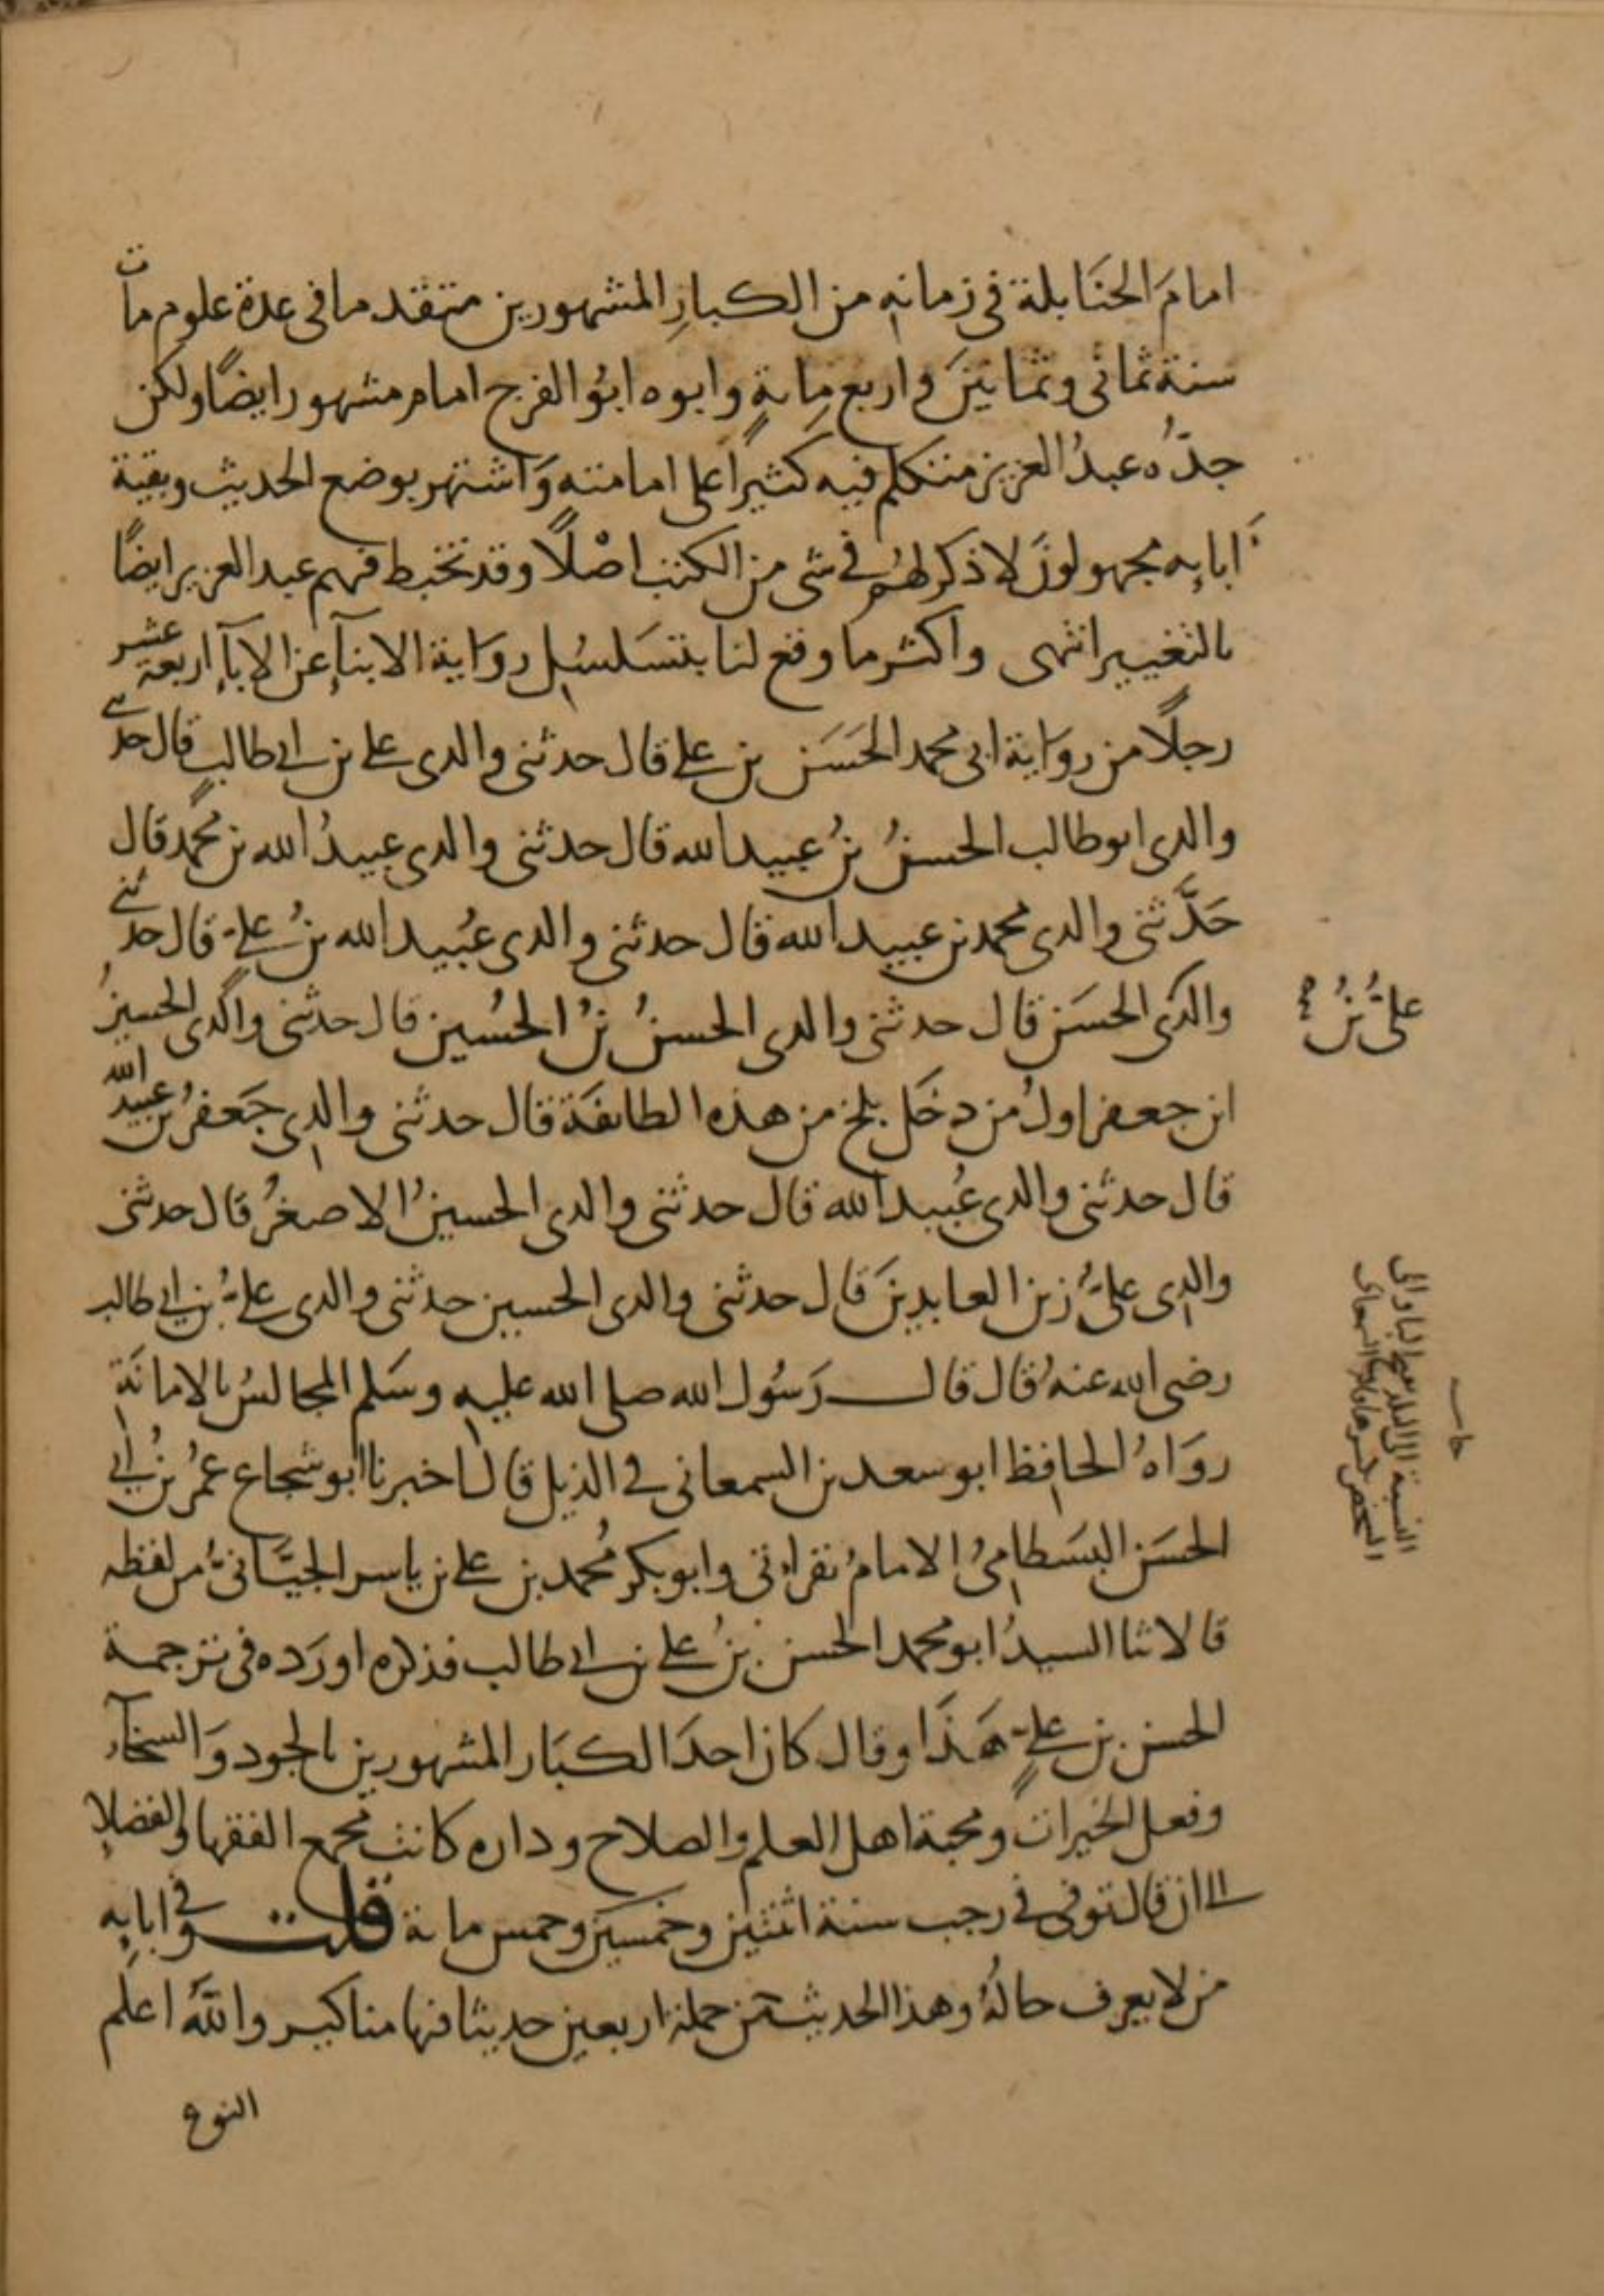 امامَ الحنَابلة فى زمانه من الكبارِ المشهورين متقدما فى عدة علوم مات
سنة ثمانى وثمانينَ واربع مِايةٍ وابوه ابوُ الفرج امام مشهور ايضًا ولكن
جدُّه عبدُ العزيز متكلم فيه كثيراً على امامته وَاشتهر بوضع الحديث وبقية
اَبايه مجهولونَ لا ذكر لهُم فى شى من الكتب اصْلًا وقد تخبط فيهم عبد العزيز ايضًا
بالتغيير انتهى واكثر ما وقع لنا بتسَلسُل روَاية الابنآءِ عن الابآءِ اربعة عشر
رجلًا من روَاية ابى محمد الحَسَن بن على قال حدثنى والدى على بن ابى طالبٍ قال حدثنى
والدى ابو طالب الحسنُ بنُ عبيد الله قال حدثنى والدى عبيدُ الله بن محمد قال
حَدَّثنى والدى محمد بن عبيد الله قال حدثنى والدى عبُيد الله بنُ على قال حدثنى
والدى الحسَن قال حدثنى والدى الحسنُ بنُ الحسُين قال حدثنى والدى الحسينُ
ابن جعفر اولُ من دخَل بلخ من هذه الطايفَة قال حدثنى والدى جَعفرُ بن عبيد الله
قال حدثنى والدى عُبيد الله قال حدثنى والدى الحسينُ الاصغرُ قال حدثنى
والدى علىُّ زين العابدينَ قال حدثنى والدى الحسين حدثنى والدى علىُّ بن ابى طالب
رضى الله عنهُ قال قال رَسُول الله صلى الله عليه وسَلم المجالسُ بالامانَة
روَاهُ الحافِظ ابو سعد بن السمعانى فى الذيل قال اخبرنا ابو شجاع عمُر بنُ ابى
الحسَن البسَطامىُ الامامُ بقراتى وابو بكر مُحمد بن على بن ياسر الجيَّانىُّ من لفظه
قالا ثنا السيدُ ابو محمد الحسن بنُ على بن ابى طالب فذكره اورَده فى ترجمة
الحسن بن علىٍ هَذا وقال كان احدَ الكبَار المشهورين بالجود وَالسخآء
وفعل الخيرات ومحبة اهل العلم والصلاح وداره كانت مجمع الفقها والفضلاءِ
الى ان قال توفى فى رجب سنة اثنتين وخمسين وخمس ماية قلت وفى ابايِه
من لا يعرف حالهُ وهذا الحديث من جملة اربعين حديثا فيها مناكير واللهُ اعلم
النوع
علىُّ بنُ